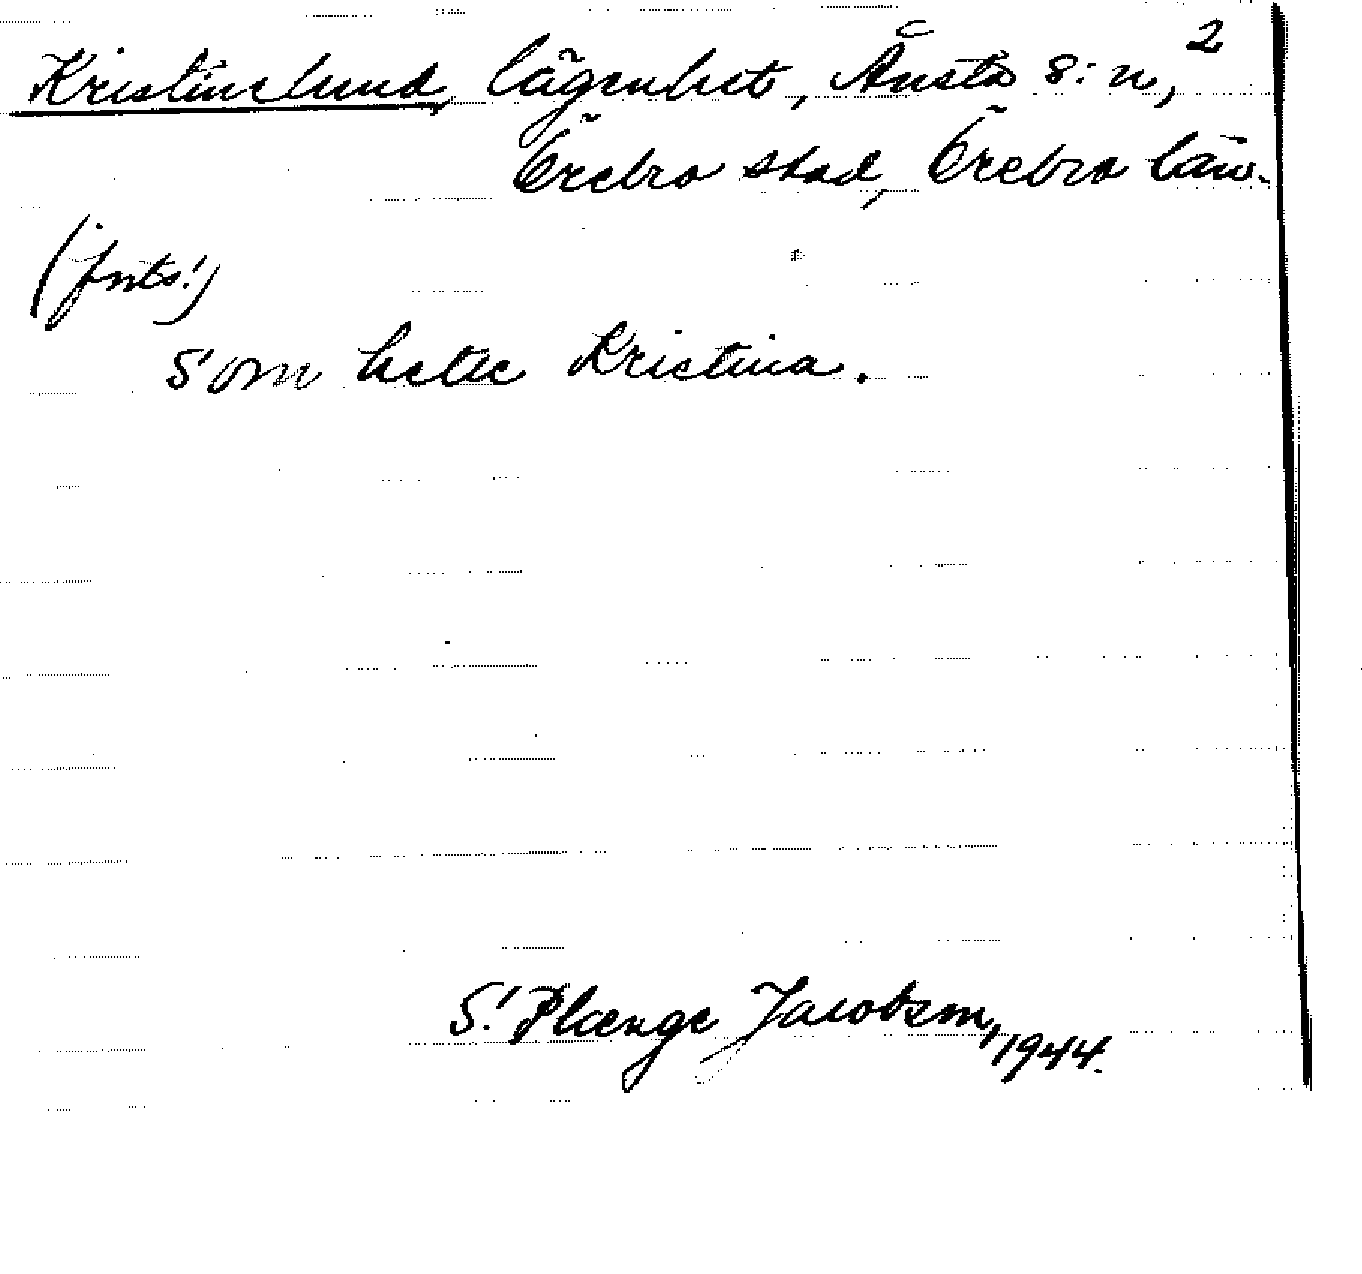 2
Kristinelund, lägenhet, Ånsta s:n,
Örebro stad, Örebro län.
(forts.)
som heter Kristina.
S. Plænge Jacobson, 1944.